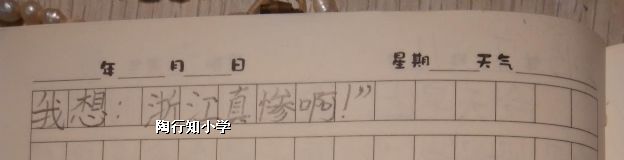 年 月 日 星期 天气
我想：浙江真惨啊！”
陶行知小学